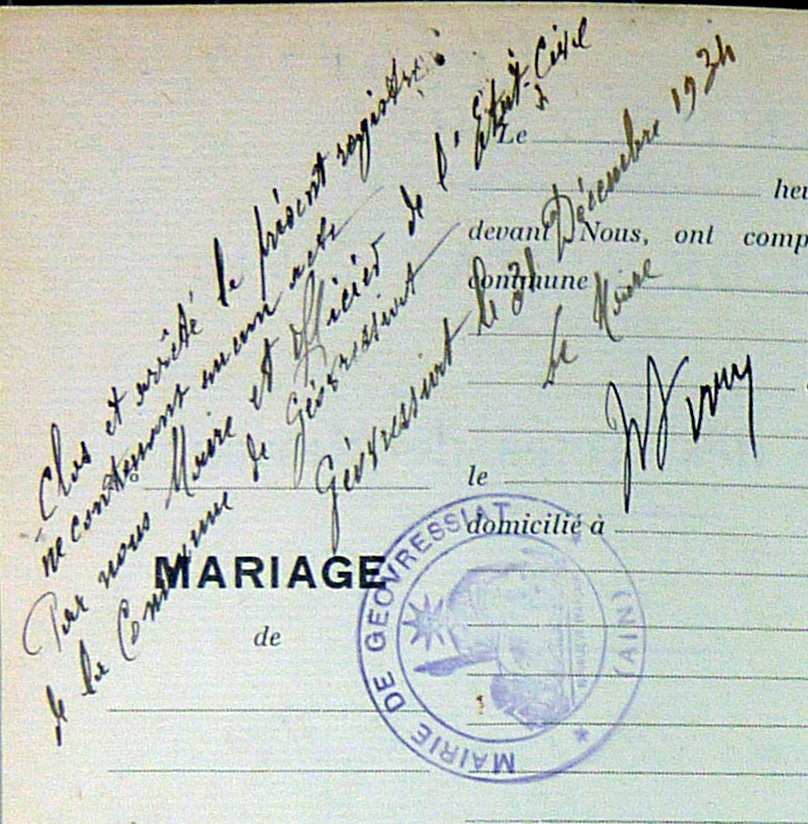 Clos et arrêté le présent registre
ne contenant aucun acte
Par nous Maire et Officier de l'Etat-Civil
de la Commune de Géovressiat
Géovressiat le 31 Décembre 1934
Le Maire
Le
heu
devant Nous, ont comp
commune
le
domicilié à
MARIAGE
de
MAIRIE DE GEOVRESSIAT
(AIN)